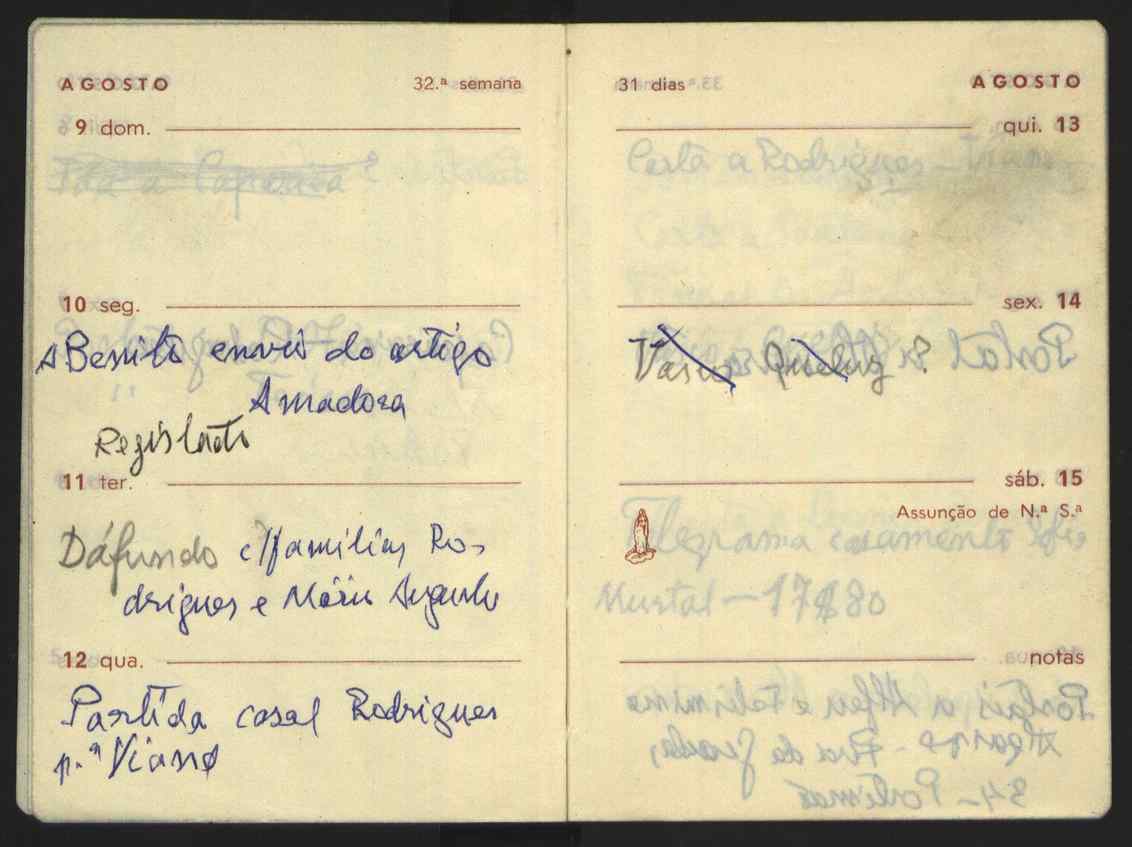 AGOSTO 32.ª semana
9 dom.
10 seg.
A Benito envio do artigo
Amadora
Registado
11 ter.
Dáfundo c/ famílias Ro-
drigues e Mário Augusto
12 qua.
Partida casal Rodrigues
p.ª Viana
31 dias AGOSTO
qui. 13
Carta a Rodrigues -
sex. 14
Vasco Queluz ?
sáb. 15
Assunção de N.ª S.ª
Telegrama casamento
- 17$80
notas